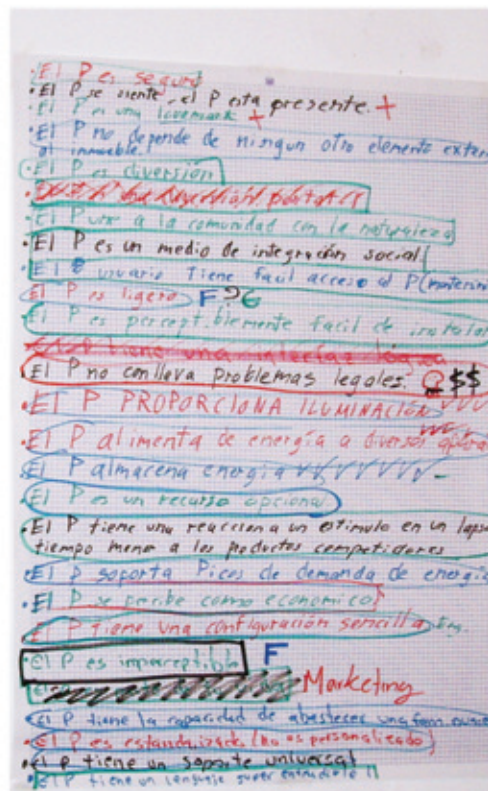 • El P es seguro
• El P se siente, el P esta presente. +
• El P es una lovemark +
• El P no depende de ningun otro elemento extern
al inmueble.
• El P es diversión
• El P une a la comunidad con la naturaleza
• El P es un medio de integración social
• El usuario tiene facil acceso al P (materia
El P es ligero F
El P es perceptiblemente facil de instalar
El P tiene una interfaz lógica
El P no conlleva problemas legales. $$
• El P PROPORCIONA ILUMINACIÓN
• El P alimenta de energía a diversos
• El P almacena energia
• El P es un recurso opcional
• El P tiene una reaccion a un estimulo en un lapso
tiempo menor a los productos competidores
• El P soporta Picos de demanda de energía
• El P se percibe como economico
El P tiene una configuración sencilla
• El P es imperceptible F
Marketing
El P tiene la capacidad de abastecer una fam.
• El P es estandarizado (no es personalizado)
• el P tiene un soporte universal
• El P tiene un lenguaje super